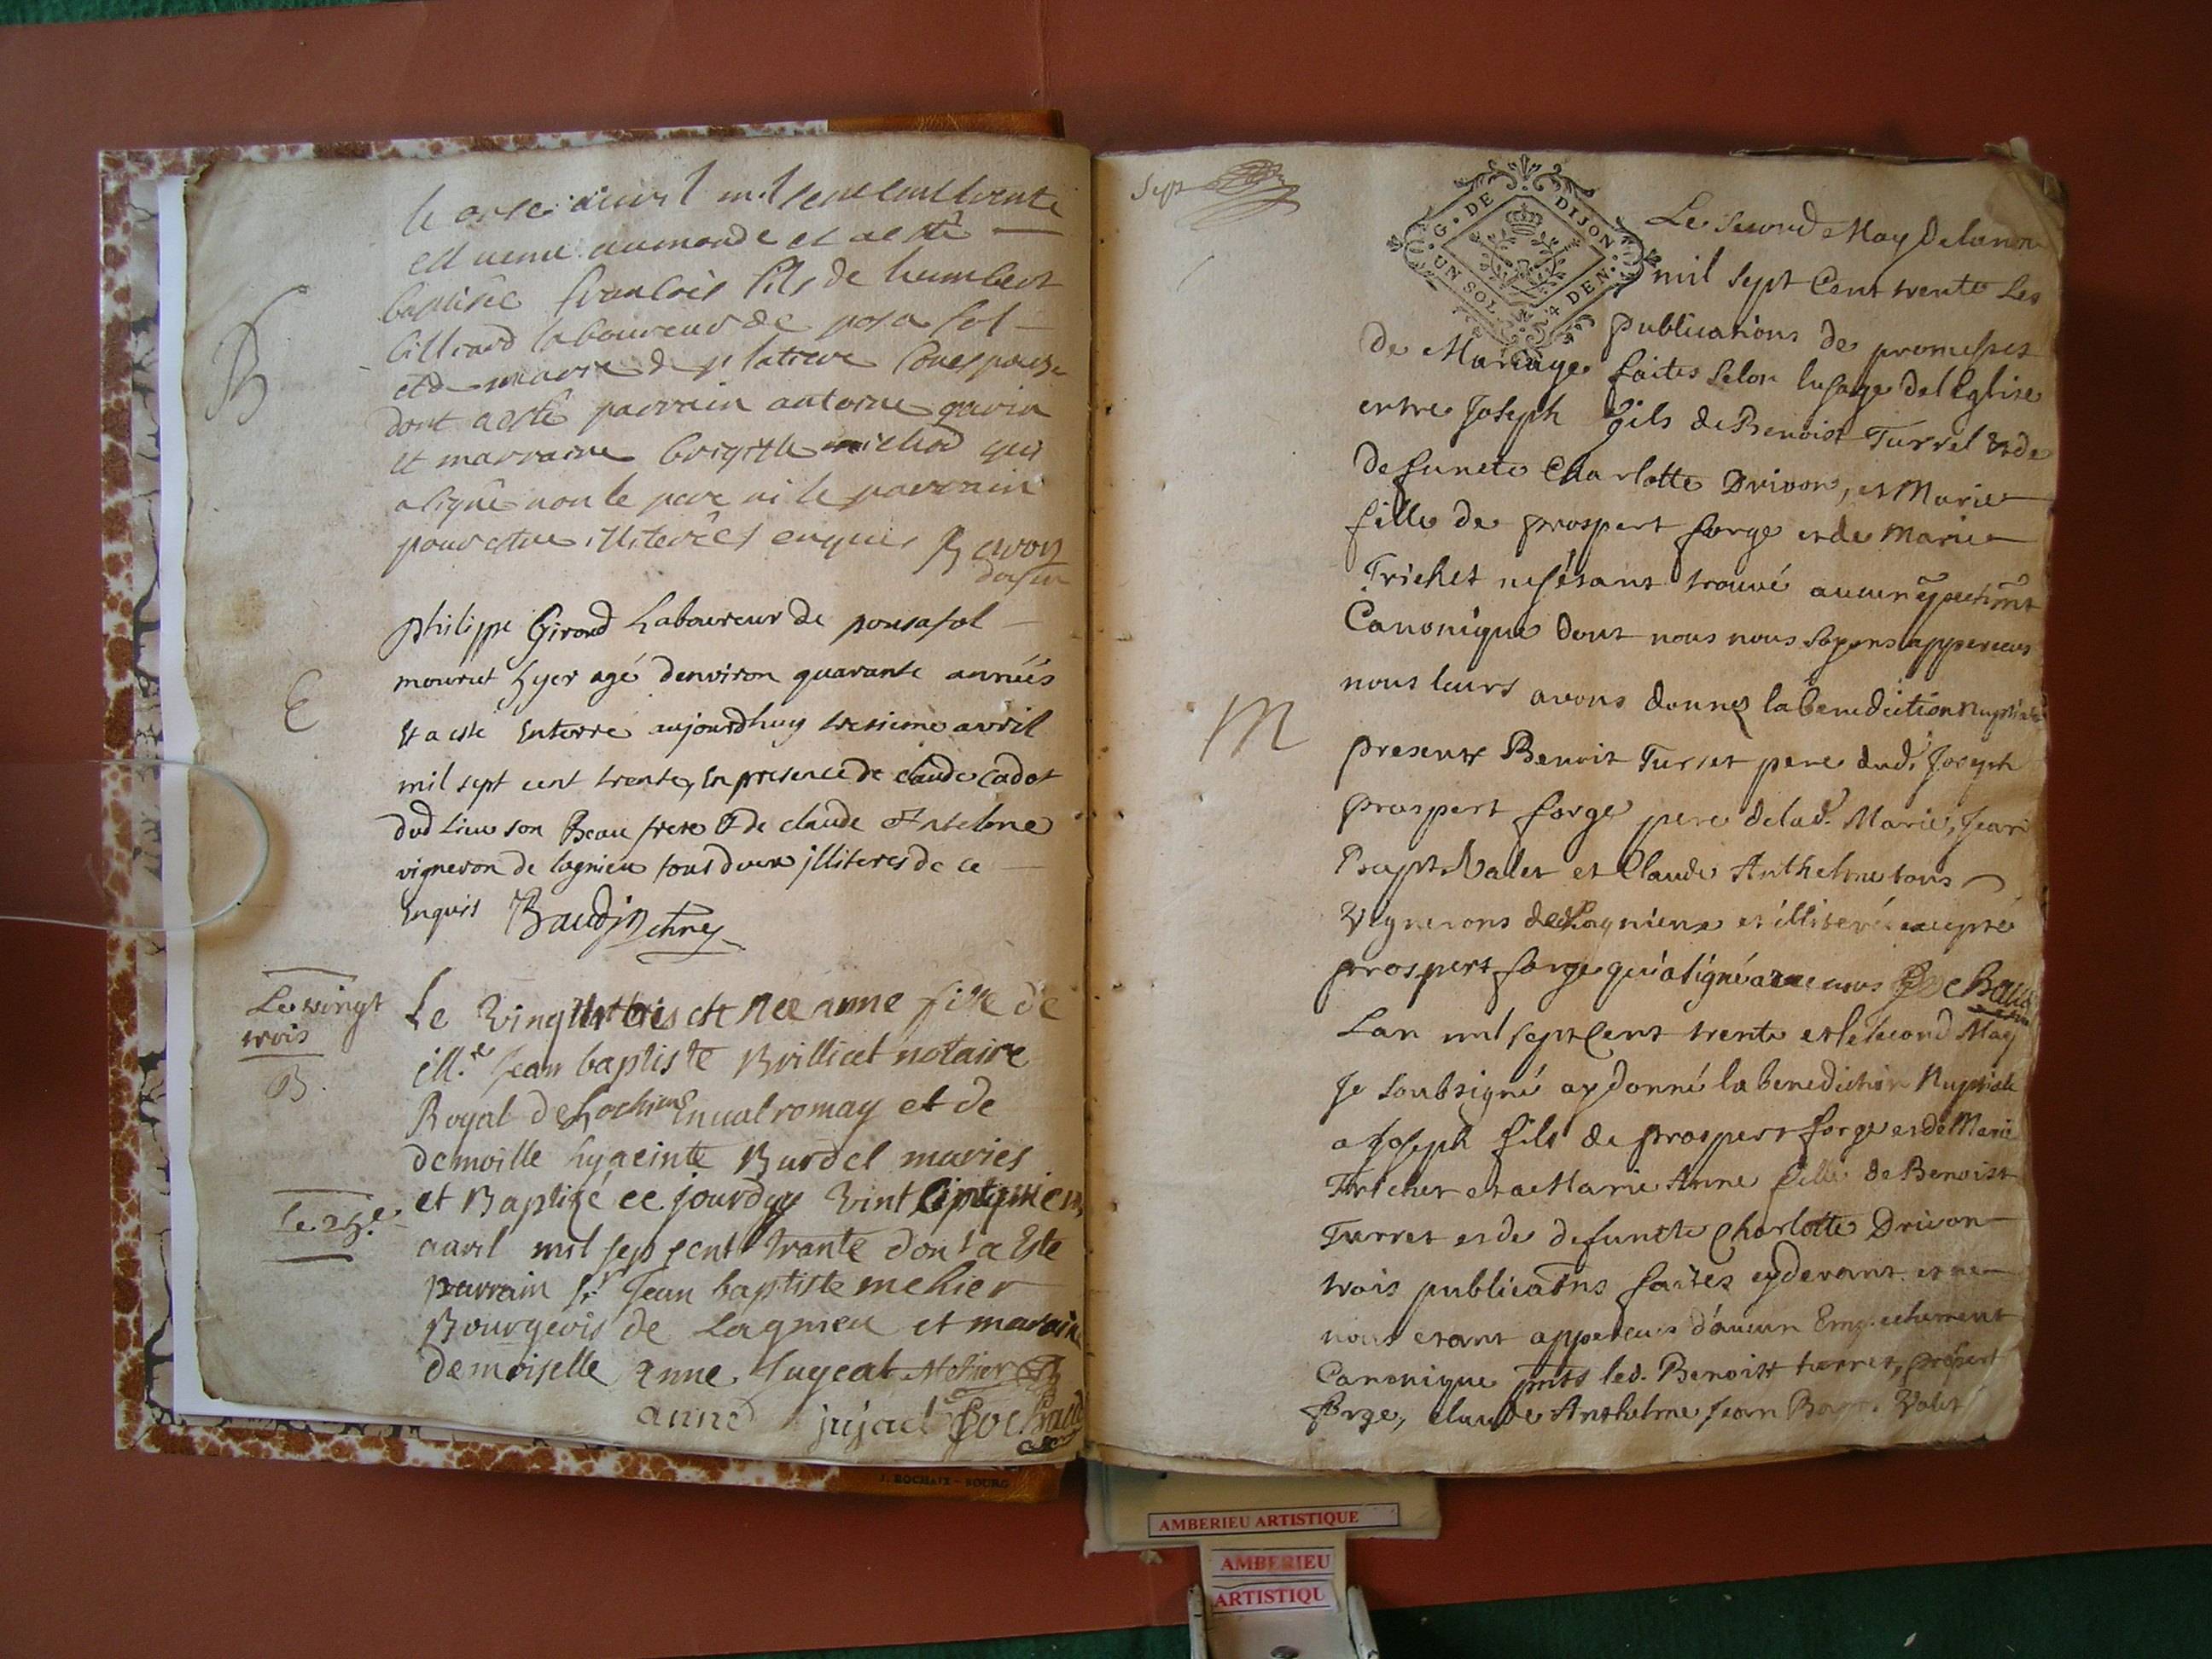 le onze auvril mil sept cent trente
est venu au monde et a esté
baptisée francois fils de humbert
billiard laboureur de posa fol
et de marie de platiere son espouze
dont a esté parrain antoine gavin
et marraine brigitte michod qui
a signé non le pere ni le parrain
pour estre illiterées enquis
B
philippe Girond Laboureur de ponsafol
mourut hyer agé denviron quarante années
Et a esté Enterré aujourdhuy tresieme avril
mil sept cent trente, En presence de claude Cadot
dud lieu son Beau frere & de claude Antelme
vigneron de lagnieu tous deux illiteres de ce
Enquis Baudin
E
Le vingt
trois
B
Le vingt trois est née anne fille de
ill.e Jean baptiste Brillicet notaire
Royal de Lochieu En valromay et de
demoille hyacinte Burdel mariés
et Baptizé ce jourdhuy vint cinquiem
avril mil sep cent trante dont a Este
parrain sr Jean baptiste mehier
Bourgeois de Lagnieu et maraine
demoiselle anne Jugeat Mehier
anne jujact Bochard
Le 25e
J. ROCHAIX - BOURG
Sept
G. DE DIJON
UN SOL. 4 DEN.
Le second May de lannee
mil sept Cent trente Les
publications de promesses
de Mariage faites selon lusage de l'Eglise
entre Joseph fils de Benoist Turrel et de
defuncte Charlotte Drivon, et Marie
fille de prospert forge et de Marie
Trichet ne sétant trouvé aucun
Canonique dont nous nous soyons apperceus
nous leurs avons donnez la benediction nuptiale
presents Benoit Turret pere dud. Joseph
prospert forge pere de lad. Marie, Jean
Bapt. Valet et Claude Anthelme tous
Vignerons de Lagnieux et illiterés excepté
prospert forge qui a signé avec nous Bochard
M
Lan mil sept Cent trente et le second May
Je soubsigné ay donné la benediction Nuptiale
a Joseph fils de prospert forge et de Marie
Trichet et a Marie Anne fille de Benoist
Turret et de defuncte Charlotte Drivon
trois publications faites cydevant et ne
nous etant apperceus d'aucun Empechement
Canonique pnts led. Benoist turret, prospert
forge, claude Anthelme Jean Bapt. Valet
AMBERIEU ARTISTIQUE
AMBERIEU
ARTISTIQU